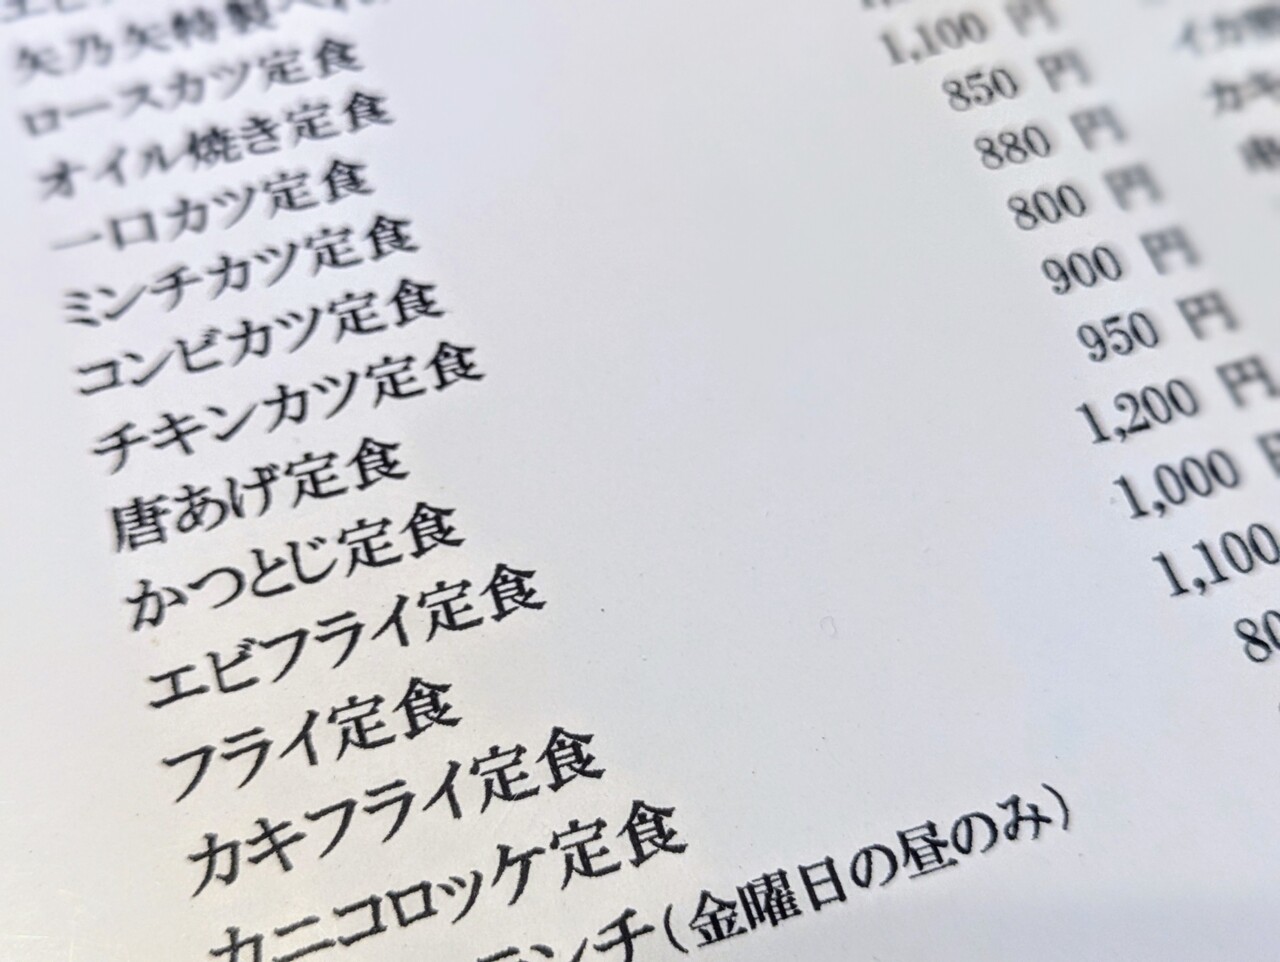 矢乃矢特製
ロースカツ定食
オイル焼き定食
一口カツ定食
ミンチカツ定食
コンビカツ定食
チキンカツ定食
唐あげ定食
かつとじ定食
エビフライ定食
フライ定食
カキフライ定食
カニコロッケ定食
ランチ(金曜日の昼のみ)
1,100 円
850 円
880 円
800 円
900 円
950 円
1,200 円
1,000 円
1,100
80
イカ
カキ